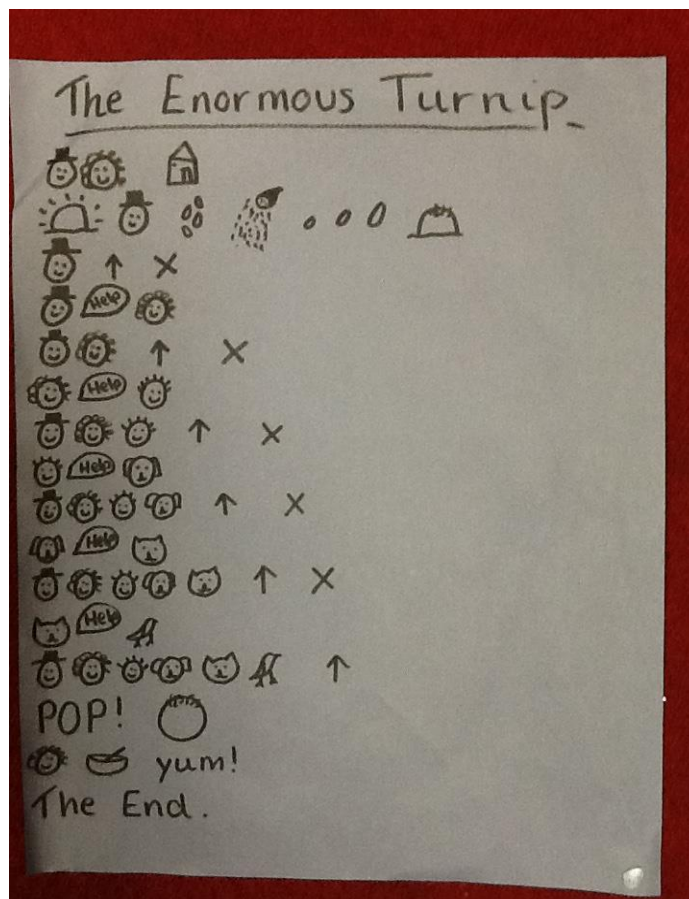 The Enormous Turnip.
Help
Help
Help
Help
Help
POP!
yum!
The End.